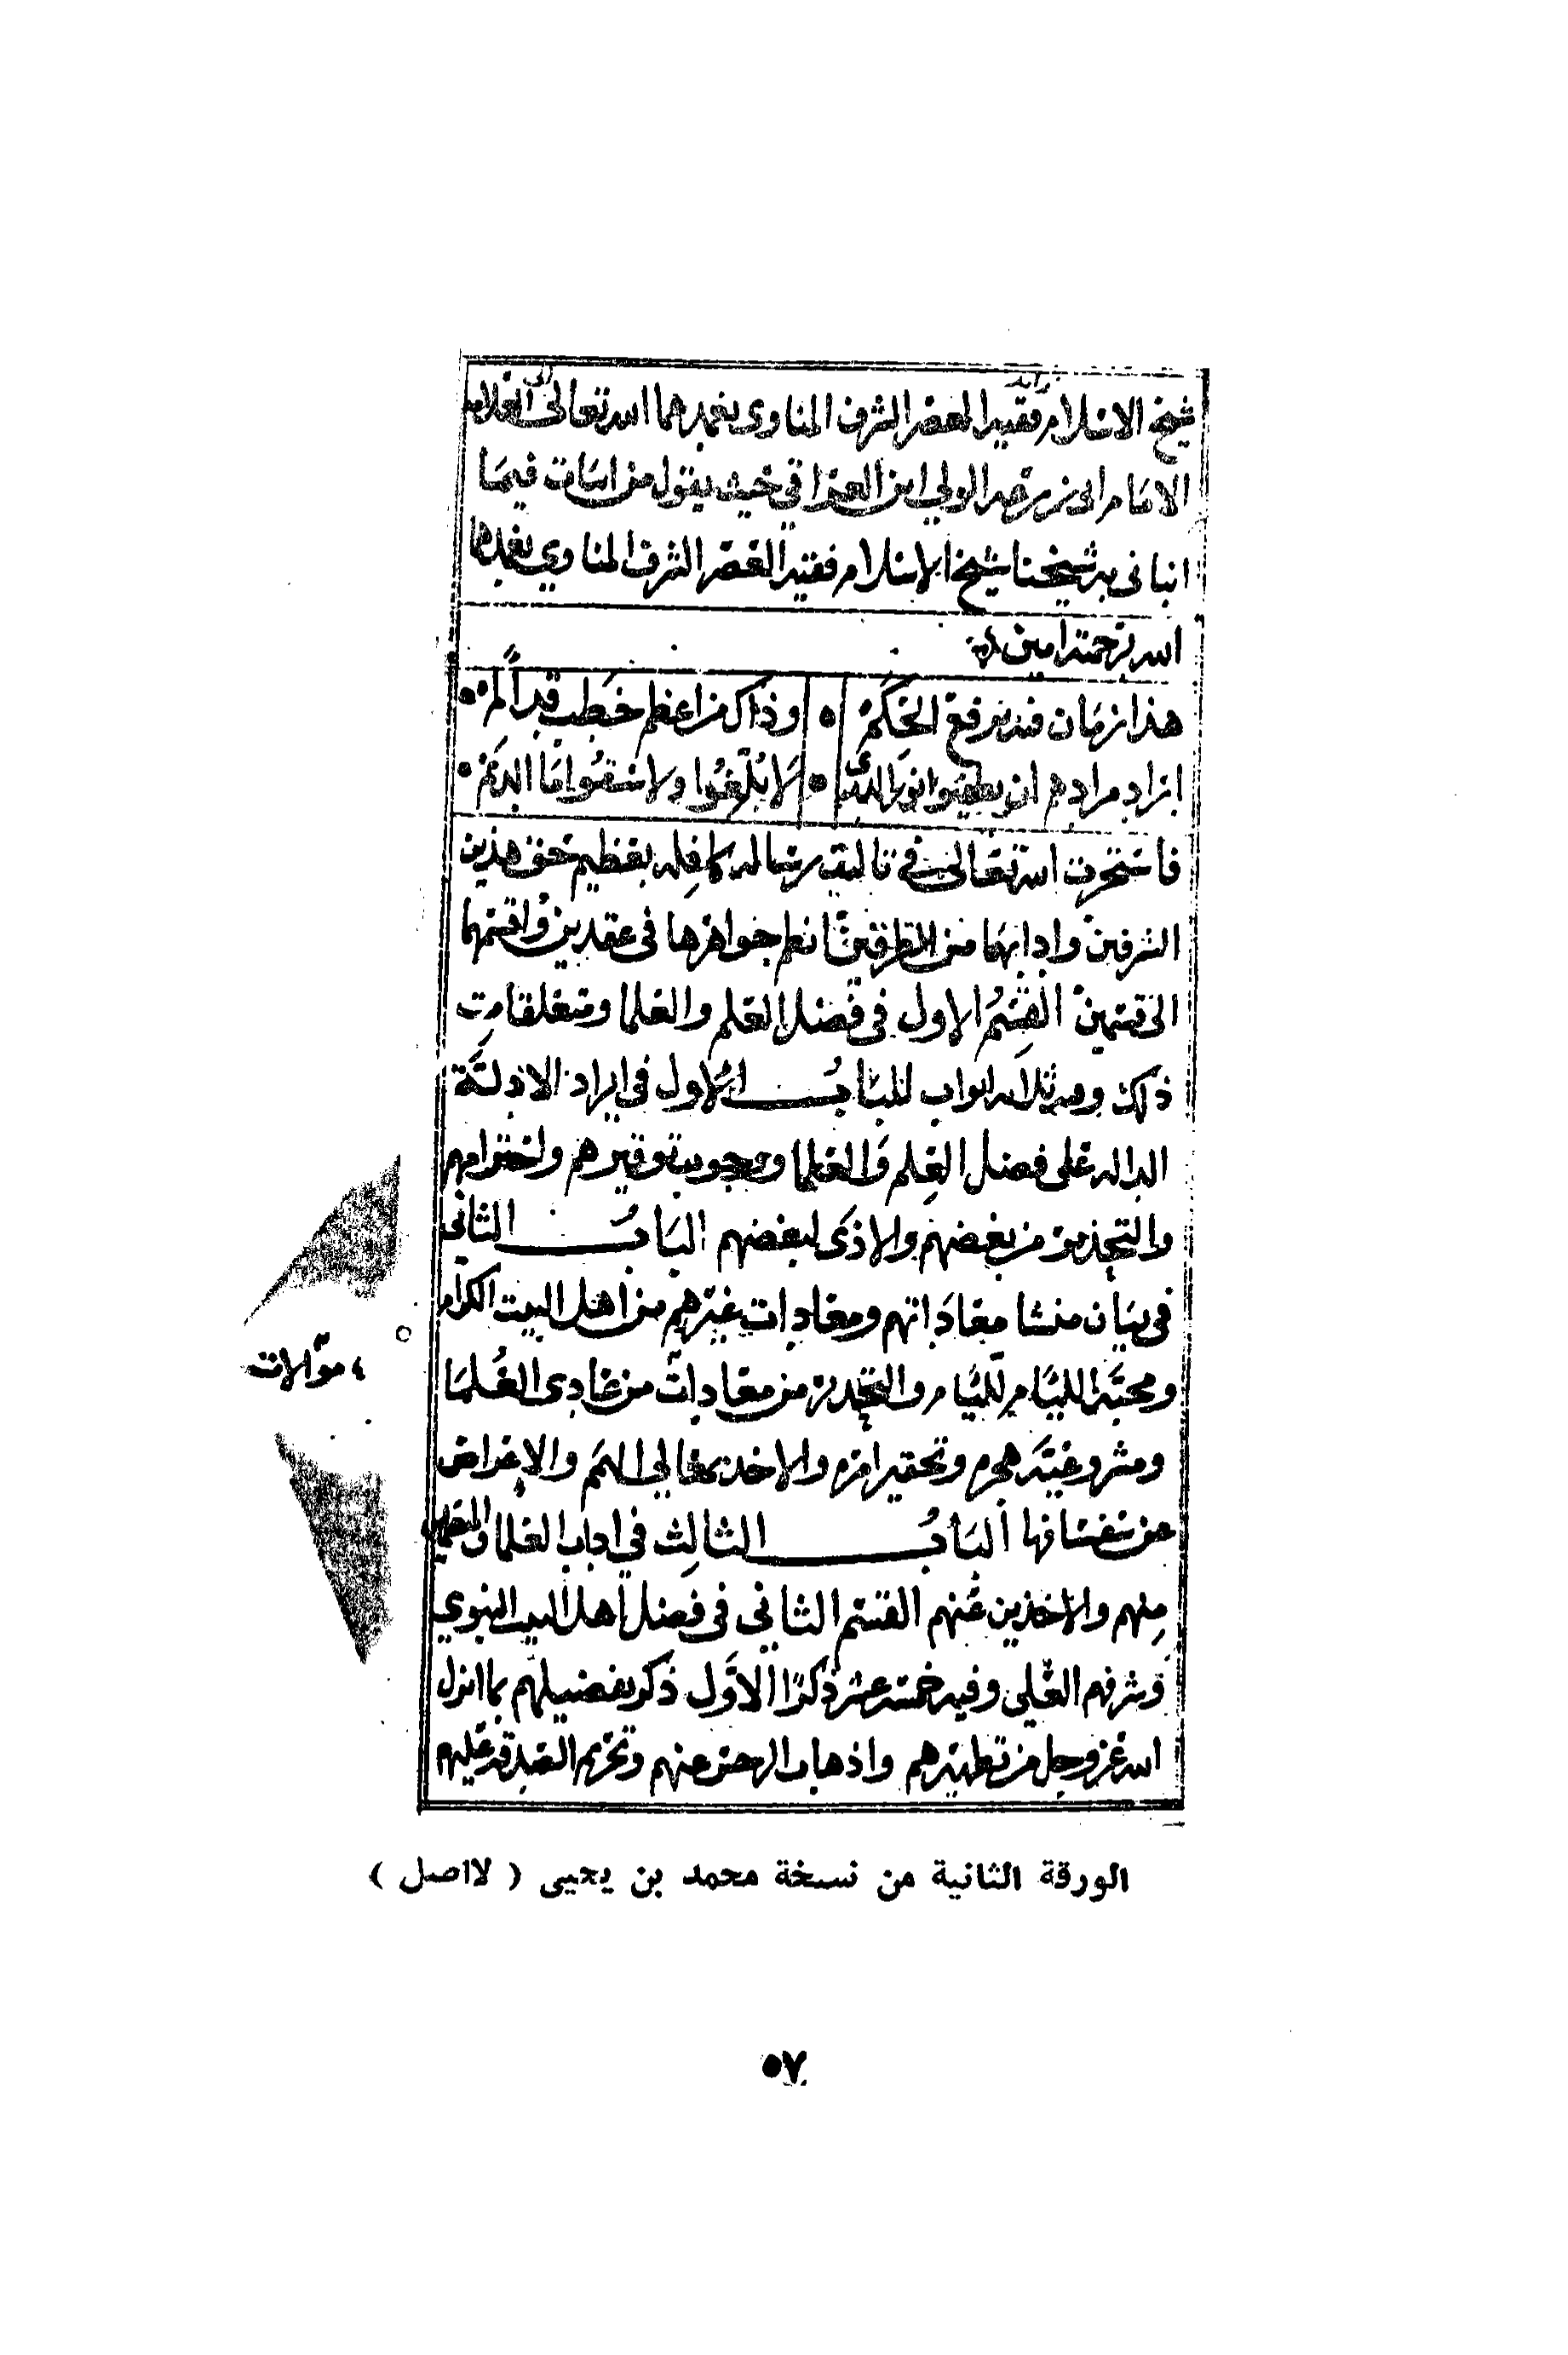 شيخ الاسلام فقيه العصر الشرف المناوى تغمدهما الله تعالى العلامه
الامام ابى زرعه الولي ابن العراقي حيث يقول من ابيات فيما
انبانى به شيخنا شيخ الاسلام فقيه العصر الشرف المناوي تغمدها
الله برحمته امين
هذا زمان قد رفع الحكم وذاك من اعظم خطب قد ألم
مرادهم ان يطفيوا نور لا بُلّغوا ولا سقوا ما الديم
فاستخرت الله تعالى في تاليف رساله كافله بتعظيم حق هذين
الشرفين وادابهما من الطرفين نظم جواهرها فى عقدين واقسمها
الى قسمين القِسْمُ الاول فى فضل العلم والعلما ومتعلقات
ذلك وفيه ثلاثه ابواب البَابُ الاول في ايراد الادلة
الداله على فضل العِلم والعلما ووجوب توقيرهم واحترامهم
والتحذير من بغضهم والاذى لبعضهم البَابُ الثاني
فى بيَان منشا معَادَاتهم ومعادات غيرهم من اهل البيت الكرام
ومحبَّة اللئام للئام والتحذير من معادات من عادى العُلمَا
ومشروعيَّة هجره وتحقير امره والاخذ بمعالي الهمم والاعراض
عن سفسافها البَابُ الثالِث في اداب العلما والمتعلمين
مِنهم والاخذين عَنهم القسم الثاني فى فضل اهل البيت النبوي
وشرفهم العَلِى وفيه خمسة عشر ذكرًا الاوَّل ذكر تفضيلهم بما انزل
الله عز وجل من تطهيرهم واذهاب الرجس عنهم وتحريم الصدقه عليهم
موّالات
الورقة الثانية من نسخة محمد بن يحيى ( لااصل )
٥٧